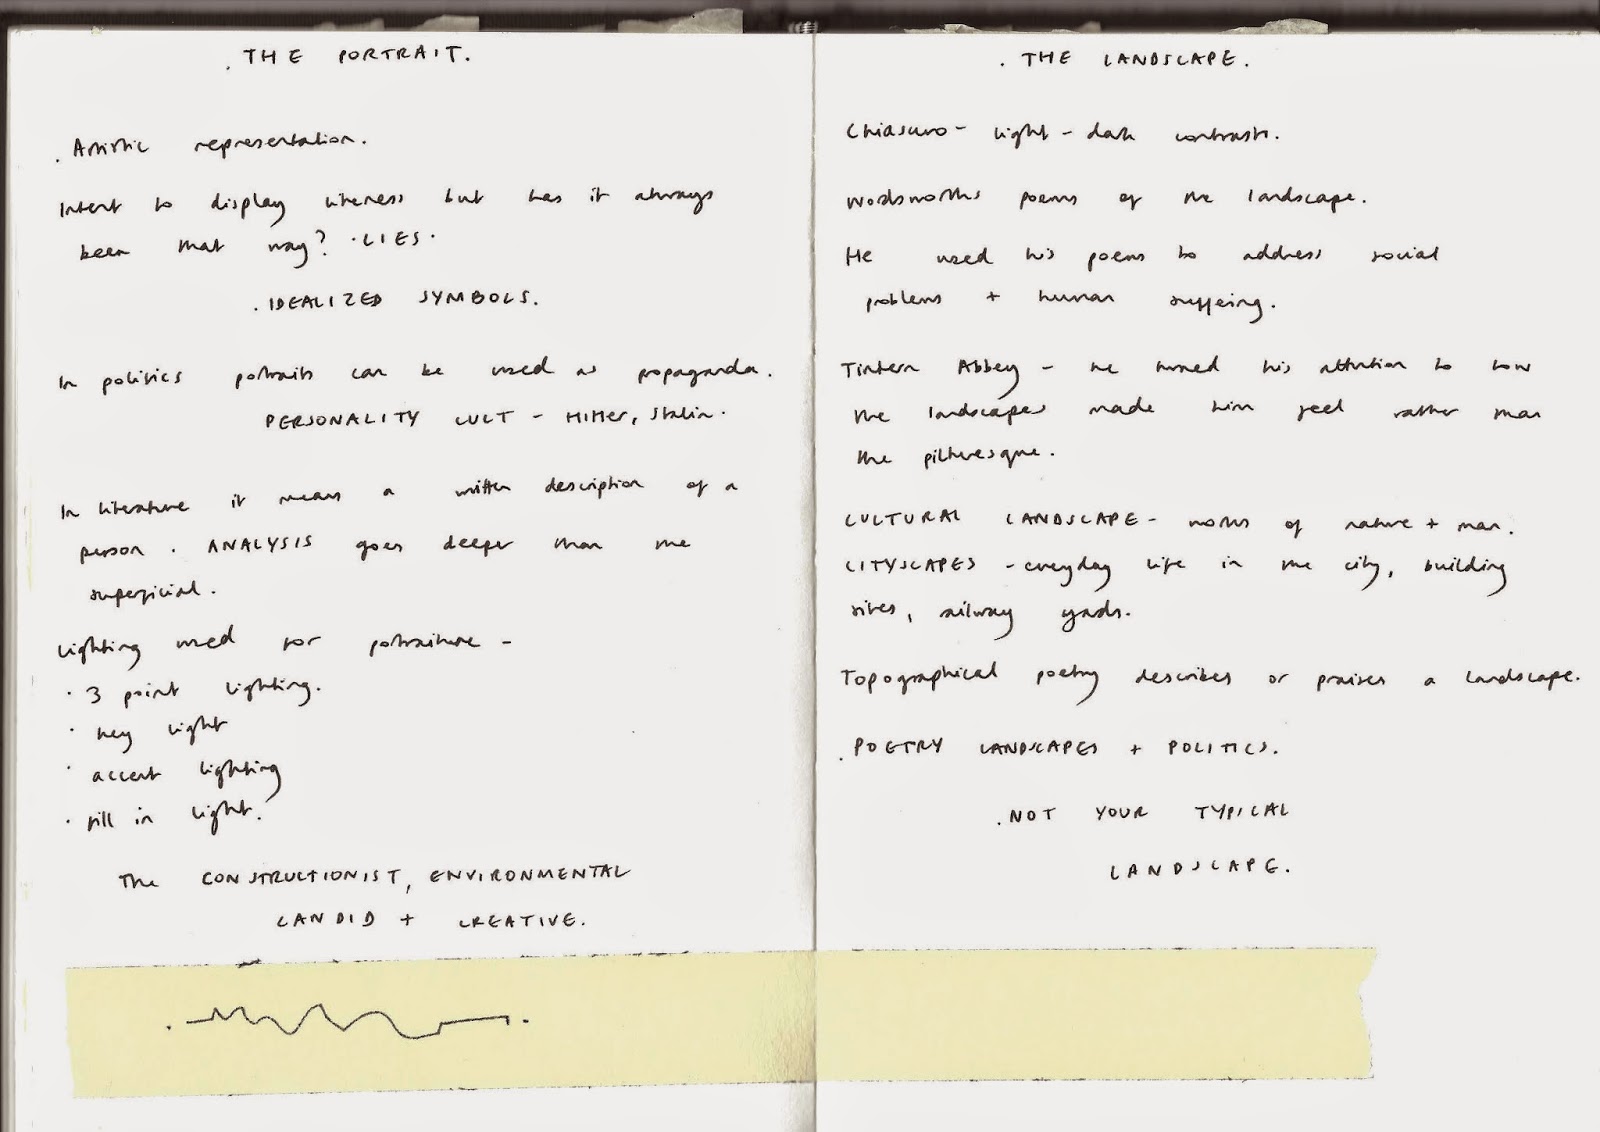 . THE PORTRAIT.
. Artistic representation.
Intent to display likeness but has it always
been that way? . LIES .
. IDEALIZED SYMBOLS.
In politics portraits can be used as propaganda.
PERSONALITY CULT - Hitler, Stalin.
In literature it means a written description of a
person . ANALYSIS goes deeper than the
superficial.
Lighting used for portraiture -
. 3 point lighting.
. key light
. accent lighting
. fill in light.
The CONSTRUCTIONIST, ENVIRONMENTAL
CANDID + CREATIVE.
. THE LANDSCAPE.
Chiascuro - light - dark contrasts.
Wordsworths poems of the landscape.
He used his poems to address social
problems + human suffering.
Tintern Abbey - he turned his attention to how
the landscapes made him feel rather than
the picturesque.
CULTURAL LANDSCAPE - works of nature + man.
CITYSCAPES - everyday life in the city, building
sites, railway yards.
Topographical poetry describes or praises a landscape.
. POETRY LANDSCAPES + POLITICS.
. NOT YOUR TYPICAL
LANDSCAPE.